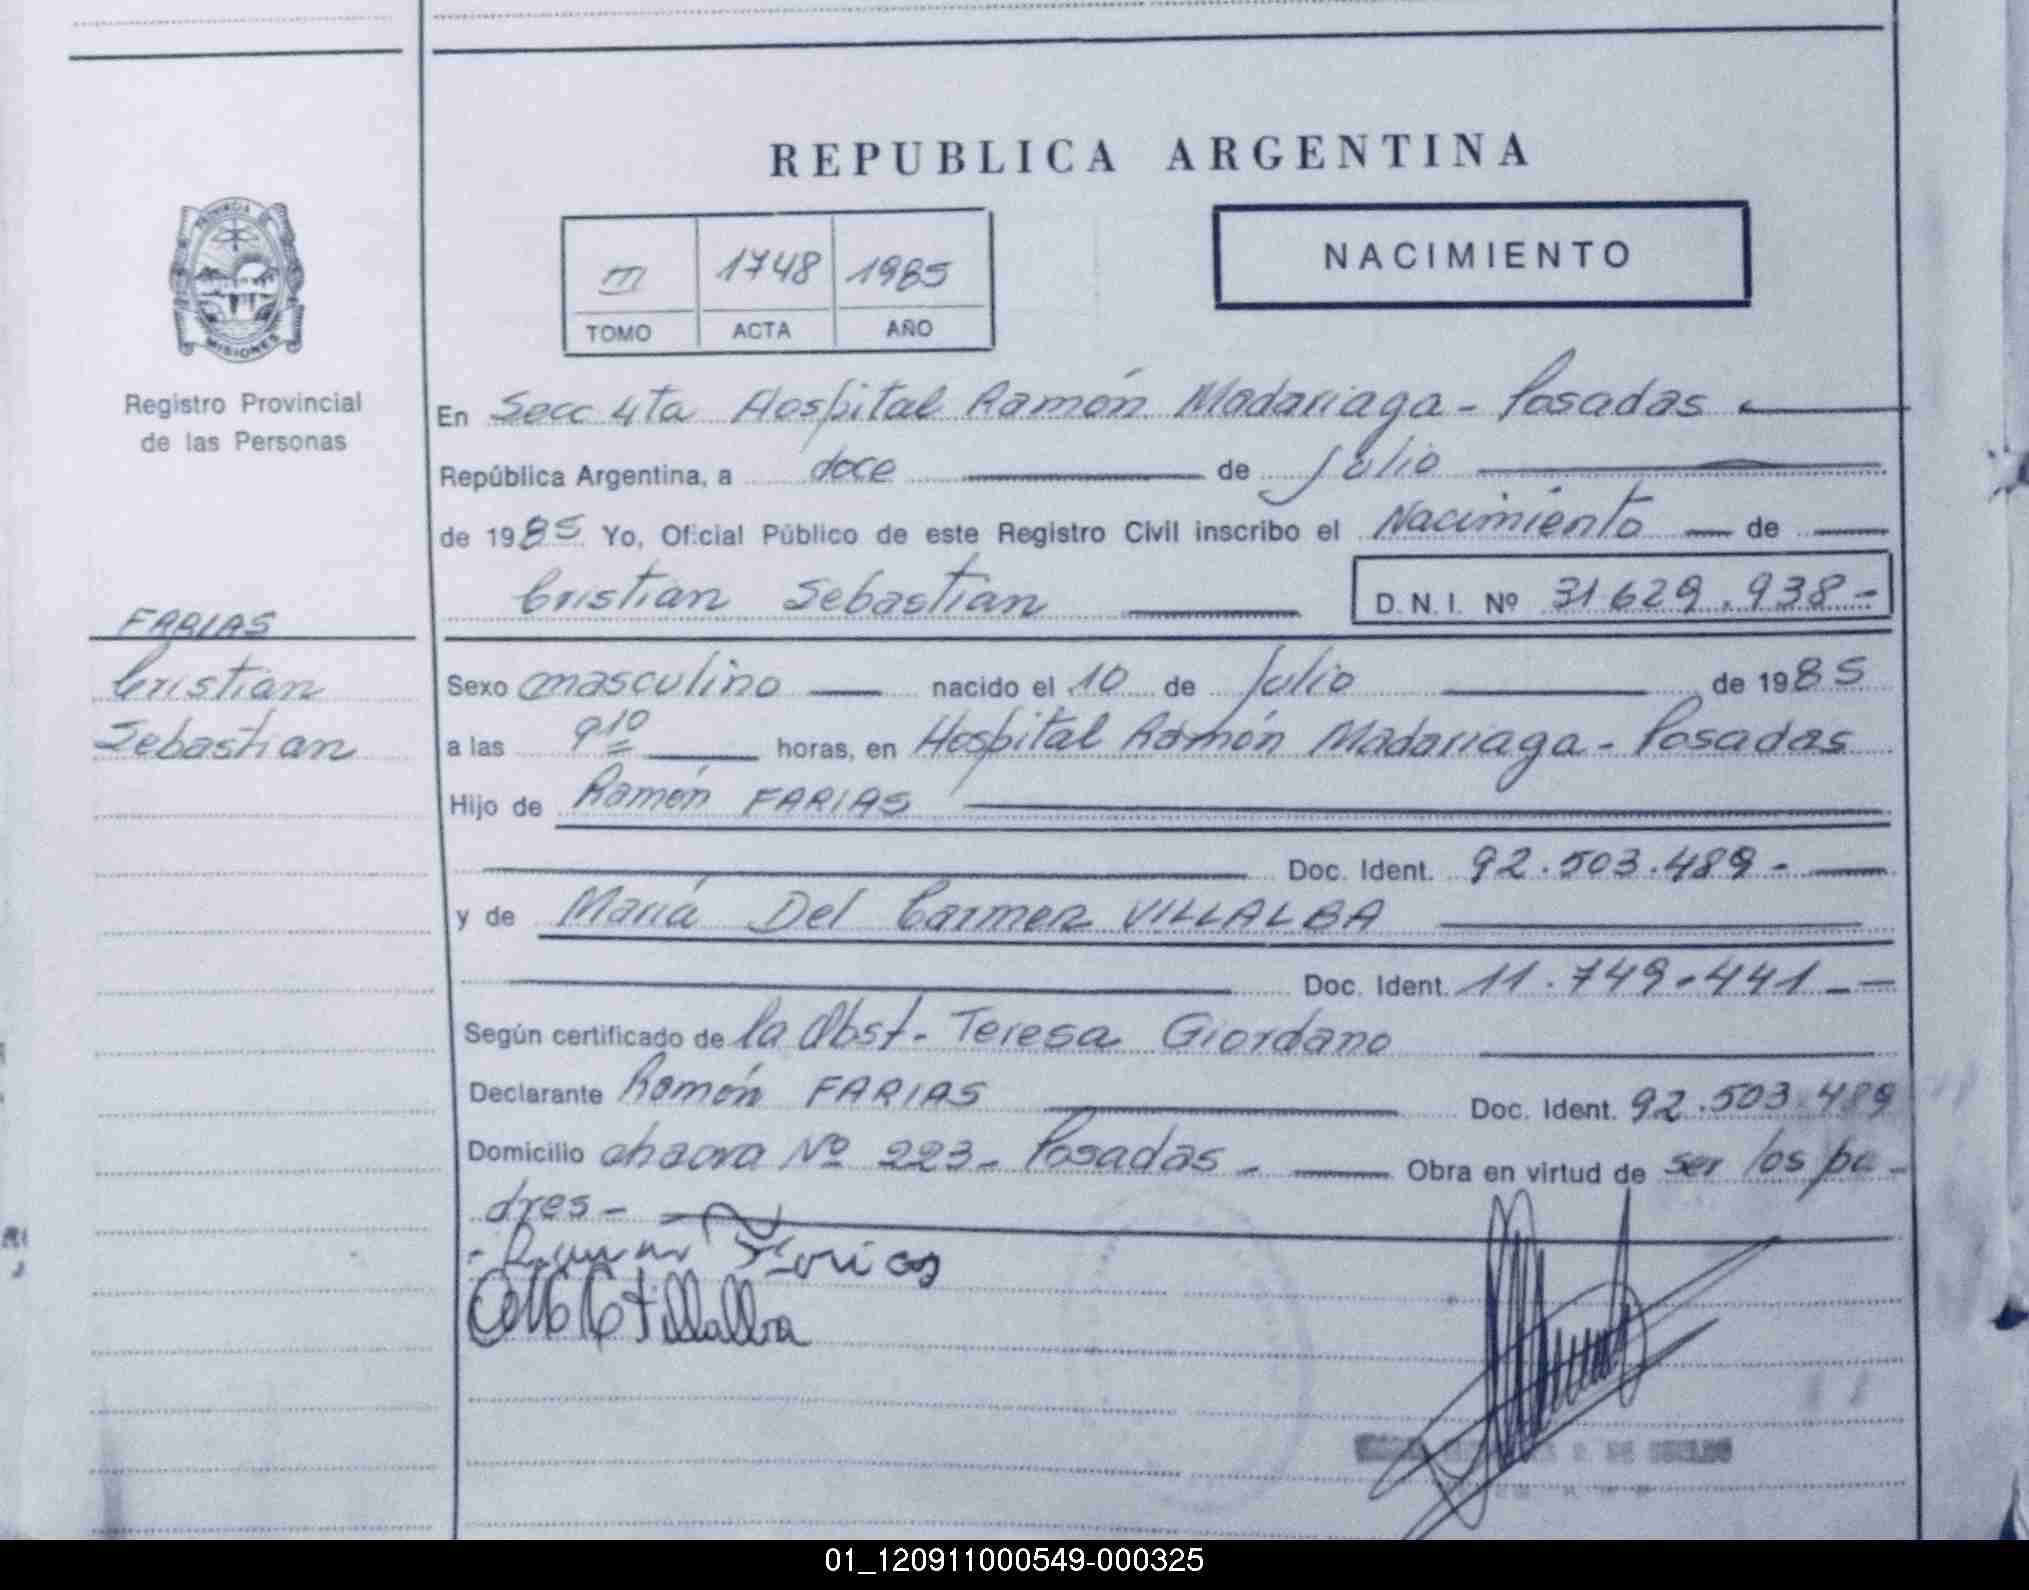 REPUBLICA ARGENTINA
PROVINCIA
MISIONES
Registro Provincial
de las Personas
III 1748 1985
TOMO ACTA AÑO
NACIMIENTO
En Secc 4ta Hospital Ramón Madariaga - Posadas
República Argentina, a doce de Julio
de 1985 Yo, Oficial Público de este Registro Civil inscribo el Nacimiento de
Cristian Sebastian D.N.I. Nº 31629.938-
FARIAS
Cristian
Sebastian
Sexo masculino nacido el 10 de Julio de 1985
a las 9 10 horas, en Hospital Ramón Madariaga - Posadas
Hijo de Ramón FARIAS
Doc. Ident. 92.503.489-
y de María Del Carmen VILLALBA
Doc. Ident. 11.749.441-
Según certificado de la Obst. Teresa Giordano
Declarante Ramón FARIAS Doc. Ident. 92.503.489
Domicilio chacra Nº 223- Posadas - Obra en virtud de ser los pa-
dres-
Farias
Villalba
01_120911000549-000325